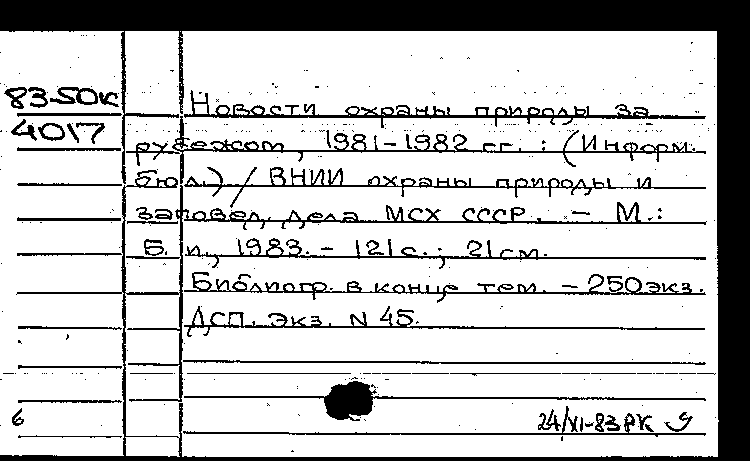 83-50к
4017
Новости охраны природы за
рубежом, 1981-1982 гг. : (Информ.
бюл.) / ВНИИ охраны природы и
заповед. дела МСХ СССР. - М.:
Б. и., 1983. - 121 с.; 21 см.
Библиогр. в конце тем. - 250 экз.
ДСП. Экз. N 45.
6
24/XI-83 РК